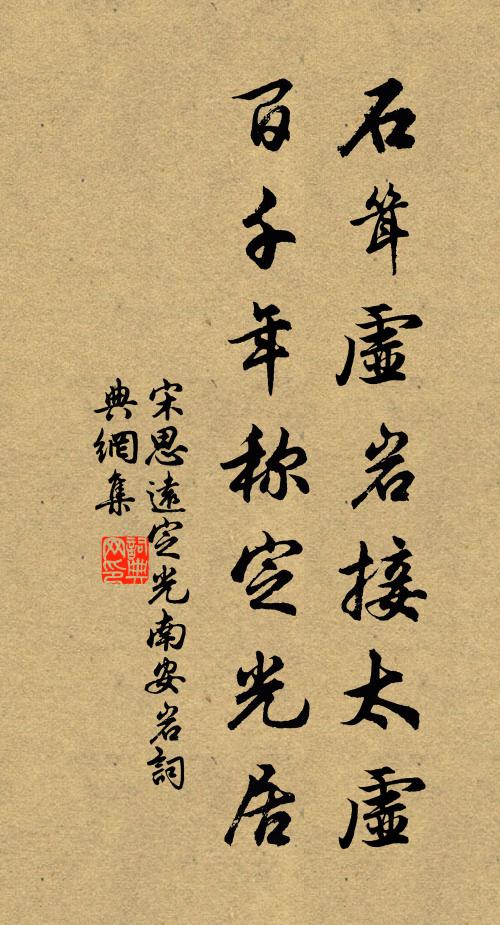 石耸虛岩接太虛
百千年称定光居
宋思遠定光南安岩詞
典網集
詞典
网印